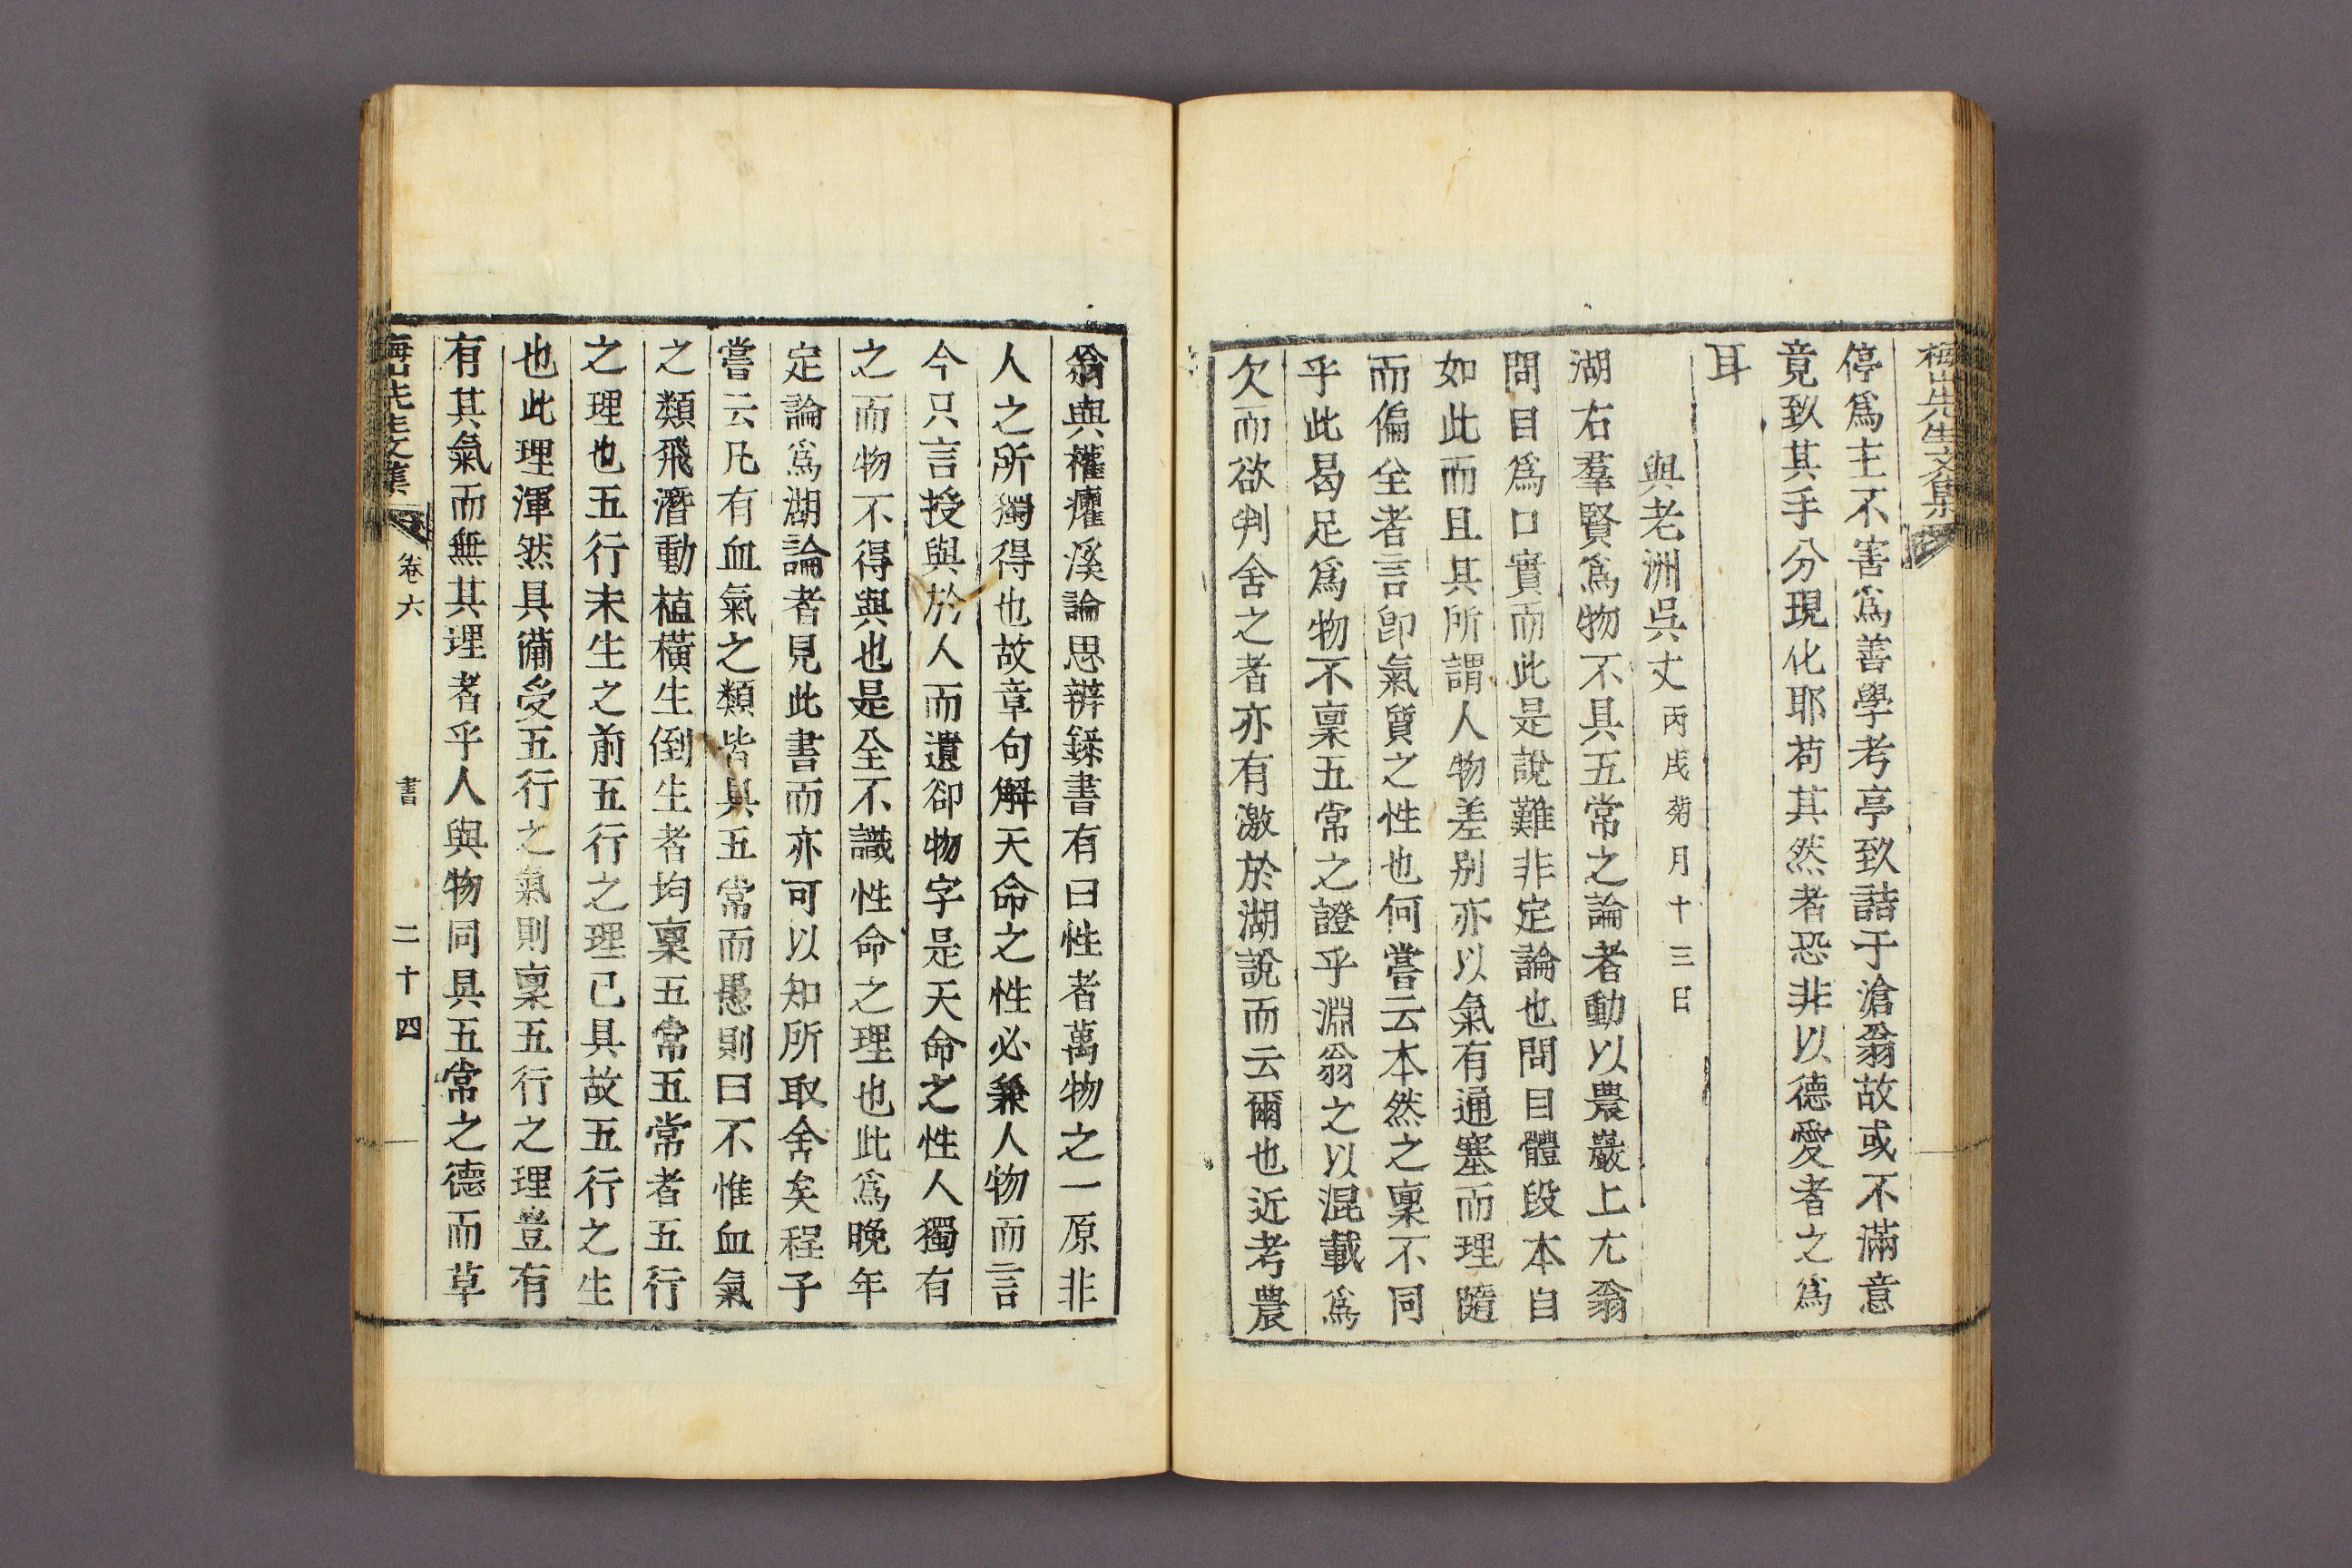 梅山先生文集
停爲主不害爲善學考亭致詰于滄翁故或不滿意
竟致其手分現化耶苟其然者恐非以德愛者之爲
耳
與老洲吳丈丙戌菊月十三日
湖右羣賢爲物不具五常之論者動以農巖上尤翁
問目爲口實而此是說難非定論也問目體段本自
如此而且其所謂人物差别亦以氣有通塞而理隨
而偏全者言卽氣質之性也何嘗云本然之稟不同
乎此曷足爲物不稟五常之證乎淵翁之以混載爲
欠而欲判舍之者亦有激於湖說而云爾也近考農
翁與權癯溪論思辨錄書有曰性者萬物之一原非
人之所獨得也故章句解天命之性必兼人物而言
今只言授與於人而遺卻物字是天命之性人獨有
之而物不得與也是全不識性命之理也此爲晚年
定論爲湖論者見此書而亦可以知所取舍矣程子
嘗云凡有血氣之類皆具五常而愚則曰不惟血氣
之類飛潛動植橫生倒生者均稟五常五常者五行
之理也五行未生之前五行之理已具故五行之生
也此理渾然具備受五行之氣則稟五行之理豈有
有其氣而無其理者乎人與物同具五常之德而草
梅山先生文集 卷六 書 二十四